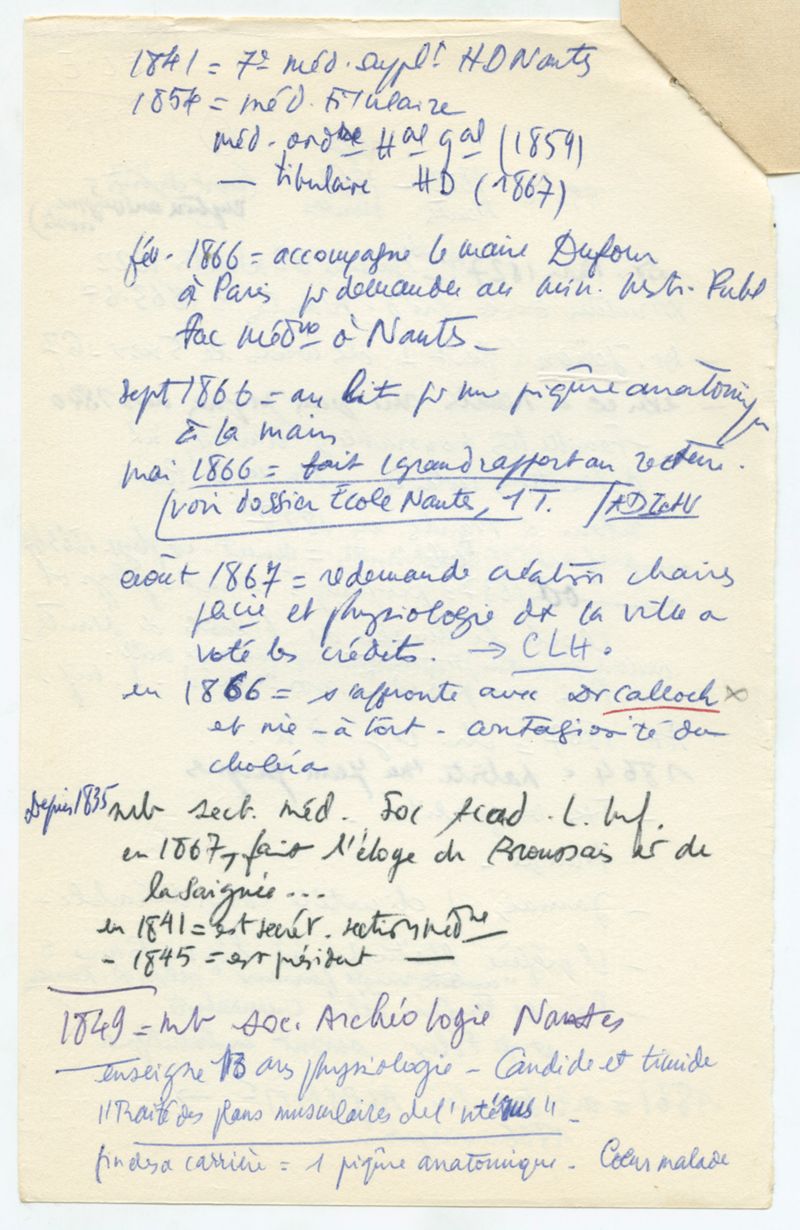 1841 = 7e méd. supplt HD Nantes
1854 = méd. titulaire
méd. ordre Hal gal (1859)
— titulaire HD (1867)
fév. 1866 = accompagne le maire Dufour
à Paris pr demander au min. Instr. Publ
Fac médne à Nantes _
sept 1866 = au lit pr une piqûre anatomique
à la main
mai 1866 = fait 1 grand rapport au recteur.
(voir dossier École Nantes, 1T. /AD I&V
août 1867 = redemande création chaires
pacie et physiologie dt la ville a
voté les crédits. → CLH.
en 1866 = s'affronte avec Dr Calloch x
et nie - à tort - contagiosité du
choléra
Depuis 1835 mb sect. méd. Soc Acad. L. Inf.
en 1867, fait l'éloge de Broussais et de
la saignée...
en 1841 = est secrét. section médne
- 1845 = est président —
1849 = mb Soc. Archéologie Nantes
enseigne 13 ans physiologie - Candide et timide
"Traité des plans musculaires de l'utérus" -
fin de sa carrière = 1 piqûre anatomique - Coeur malade